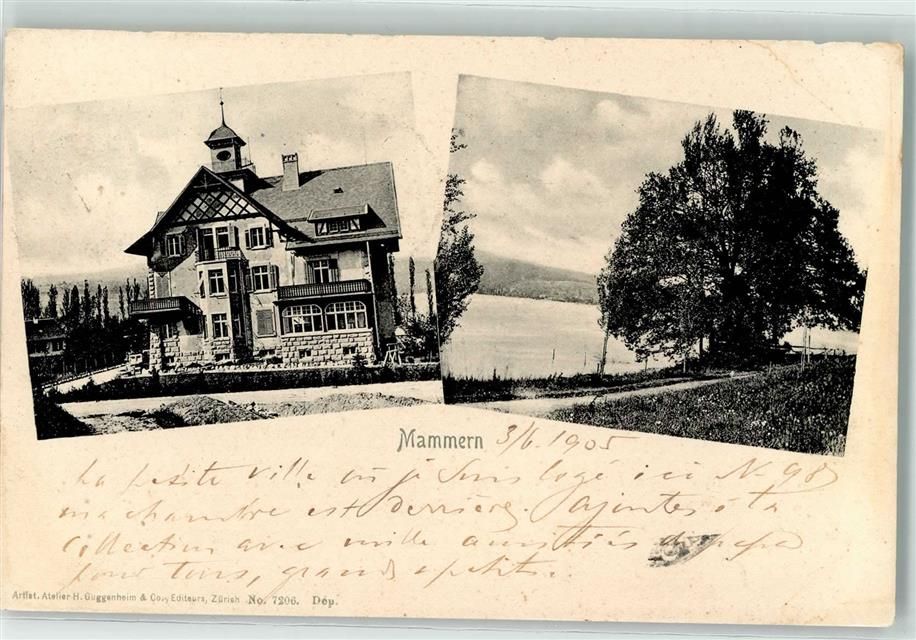 Mammern 3/6. 1905
La petite ville où je suis logé ici N. 98
ma chambre est derrière. ajoutes à ta
Collection avec mille amitiés de papa
pour tous, grands et petits.
Artist. Atelier H. Guggenheim & Co., Editeurs, Zürich No. 7206. Dép.